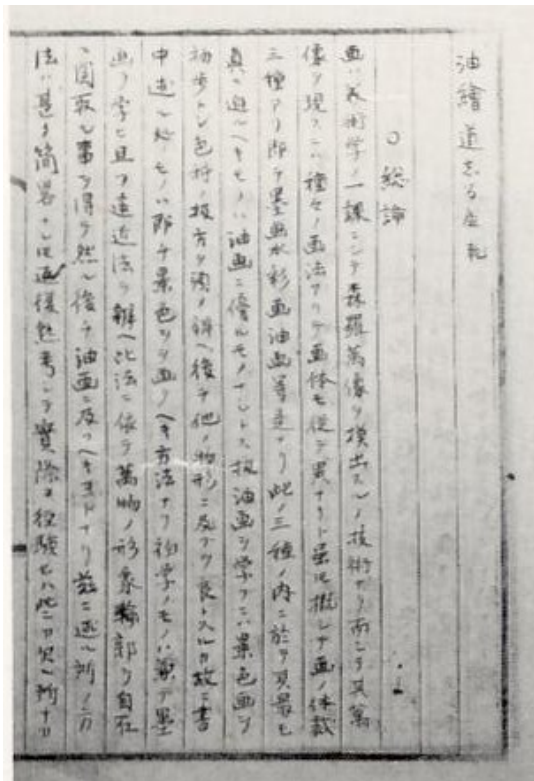 油繪道志る辺 乾
〇総論
画ハ美術学ノ一課ニシテ森羅萬像ヲ摸出スルノ技術ナリ而シテ其萬
像ヲ現スニハ種々ノ画法アリテ画体モ従テ異ナリト雖トモ概シテ画ノ体裁
三種アリ即チ墨画水彩画油画等是ナリ此ノ三種ノ内ニ於テ其最モ
真ニ逼ルヘキモノハ油画ニ優ルモノナシトス扨油画ヲ学フニハ景色画ヲ
初歩トシ色料ノ扱方ヲ辨ヘ後チ他ノ物形ニ及フヲ良トスルカ故ニ書
中述ル処ノモノハ即チ景色ヲ画クヘキ方法ナリ初学ノモノハ豫テ墨
画ヲ学ヒ且ツ遠近法ヲ辨ヘ此法ニ依テ萬物ノ形象輪郭ヲ自在
ニ図取ル事ヲ得テ然ル後チ油画ニ及フヘキヿナリ茲ニ述ル所ノ
法ハ甚タ簡略ナレ𪜈返復熟考シテ實際ヲ経験セハ欠ル所ナカ